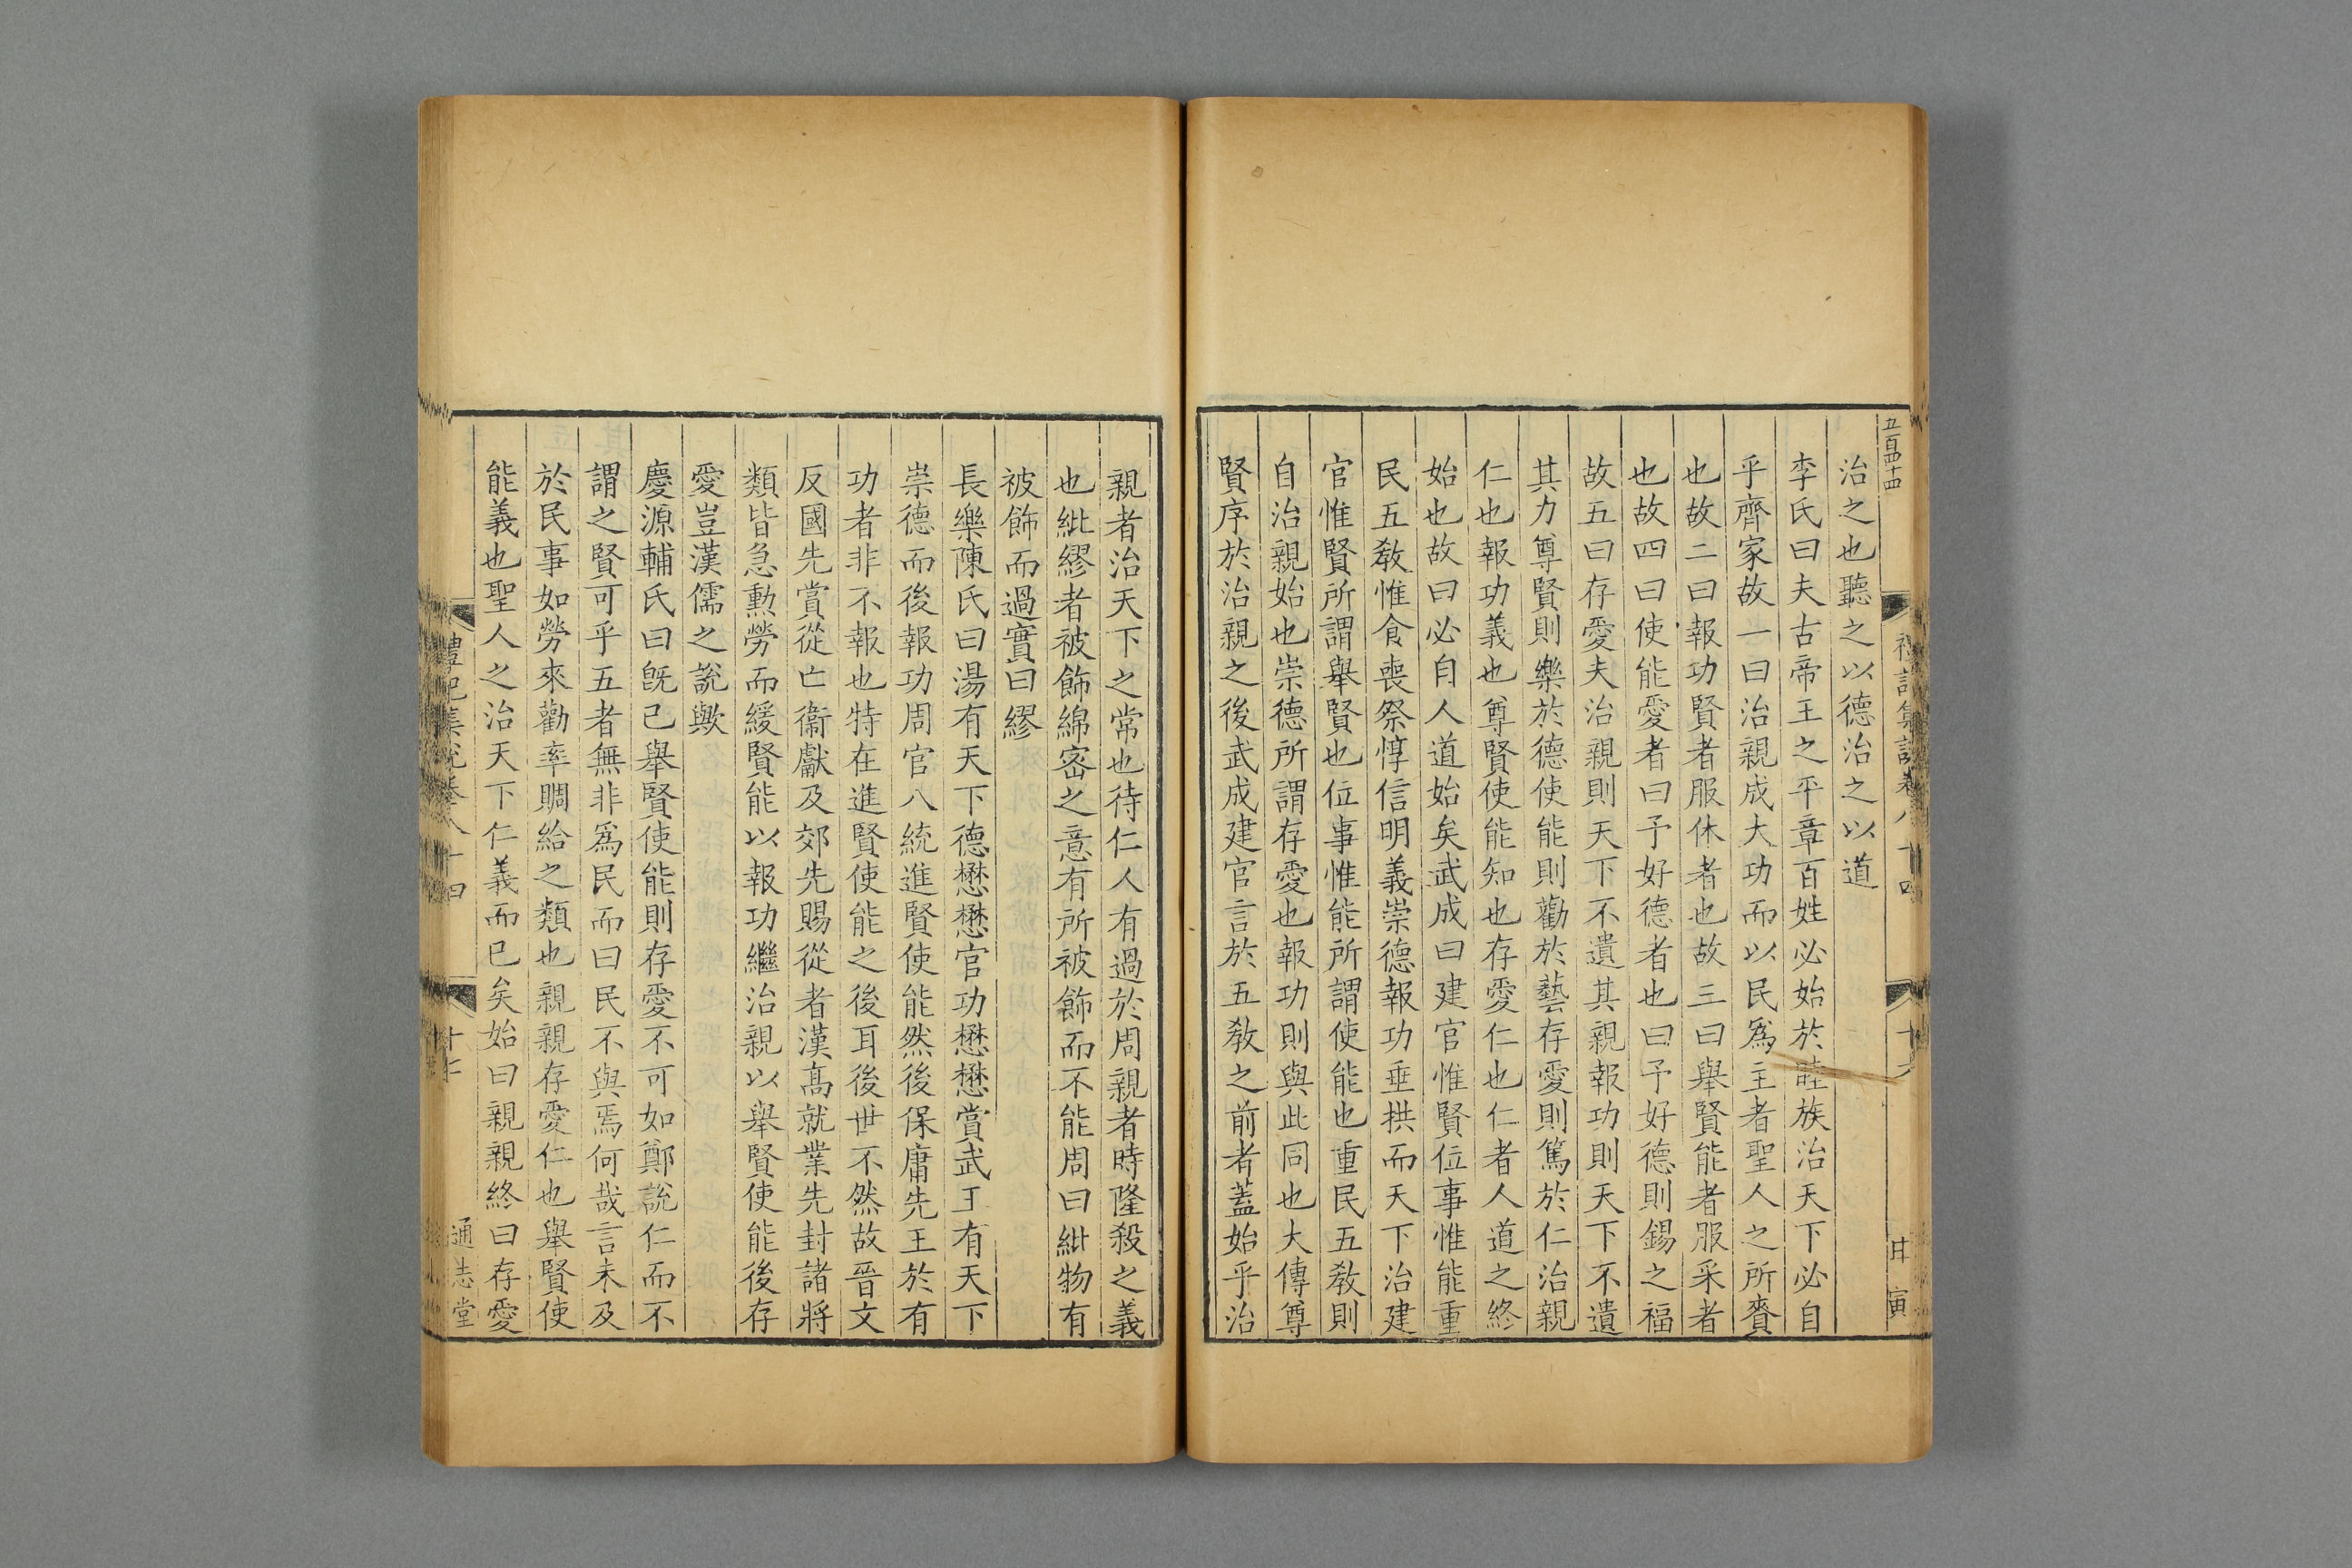 五百四十四
治之也聽之以德治之以道
李氏曰夫古帝王之平章百姓必始於睦族治天下必自
乎齊家故一曰治親成大功而以民爲主者聖人之所賚
也故二曰報功賢者服休者也故三曰舉賢能者服采者
也故四曰使能愛者曰予好德者也曰予好德則錫之福
故五曰存愛夫治親則天下不遺其親報功則天下不遺
其力尊賢則樂於德使能則勸於藝存愛則篤於仁治親
仁也報功義也尊賢使能知也存愛仁也仁者人道之終
始也故曰必自人道始矣武成曰建官惟賢位事惟能重
民五敎惟食喪祭惇信明義崇德報功垂拱而天下治建
官惟賢所謂舉賢也位事惟能所謂使能也重民五敎則
自治親始也崇德所謂存愛也報功則與此同也大傳尊
賢序於治親之後武成建官言於五敎之前者蓋始乎治
親者治天下之常也待仁人有過於周親者時隆殺之義
也紕繆者被飾綿密之意有所被飾而不能周曰紕物有
被飾而過實曰繆
長樂陳氏曰湯有天下德懋懋官功懋懋賞武王有天下
崇德而後報功周官八統進賢使能然後保庸先王於有
功者非不報也特在進賢使能之後耳後世不然故晉文
反國先賞從亡衞獻及郊先賜從者漢髙就業先封諸將
類皆急勲勞而緩賢能以報功繼治親以舉賢使能後存
愛豈漢儒之說歟
慶源輔氏曰旣己舉賢使能則存愛不可如鄭說仁而不
謂之賢可乎五者無非爲民而曰民不與焉何哉言未及
於民事如勞來勸率賙給之類也親親存愛仁也舉賢使
能義也聖人之治天下仁義而已矣始曰親親終曰存愛
禮記集說卷八十四
十七
通志堂